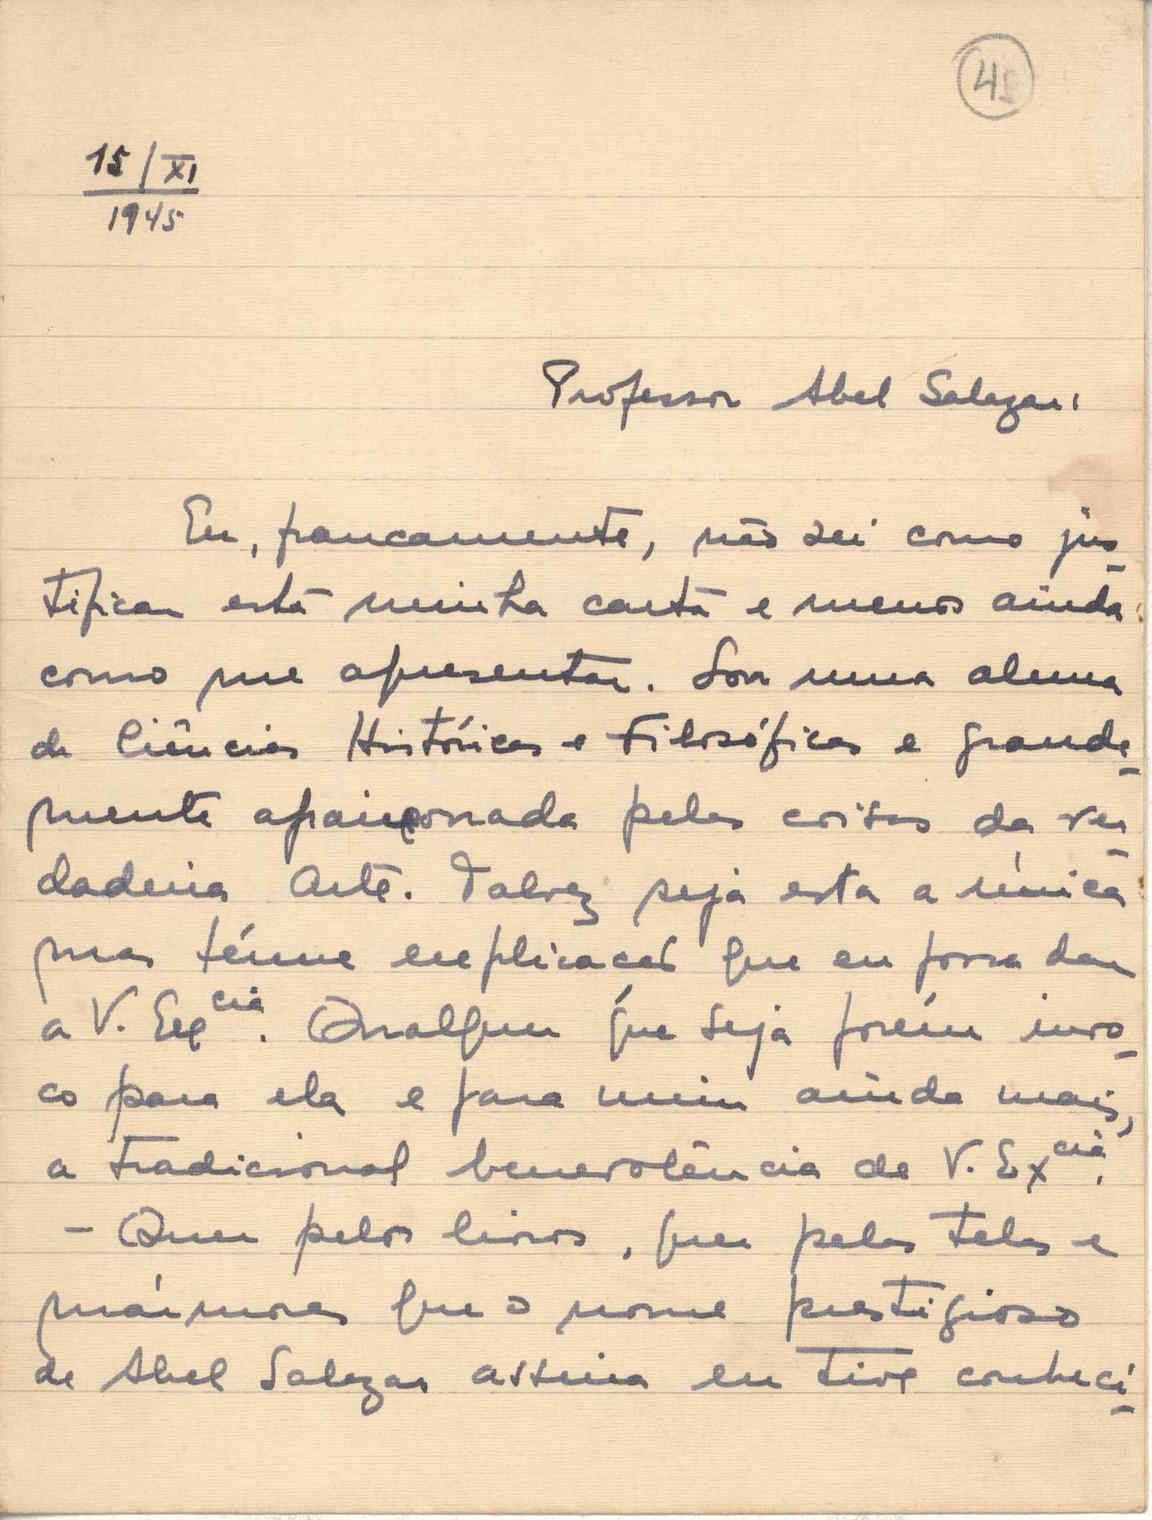 45
15/XI
1945
Professor Abel Salazar:
Eu, francamente, não sei como jus-
tificar esta minha carta e menos ainda
como me apresentar. Sou uma aluna
de Ciências Históricas e Filosóficas e grande-
mente apaixonada pelas coisas da ver-
dadeira Arte. Talvez seja esta a única
mas ténue explicação que eu possa dar
a V. Excia. Qualquer que seja porém invo-
co para ela e para mim ainda mais,
a tradicional benevolência de V. Excia.
- Quer pelos livros, quer pelas telas e
mármores que o nome prestigioso
de Abel Salazar assina eu tive conheci-